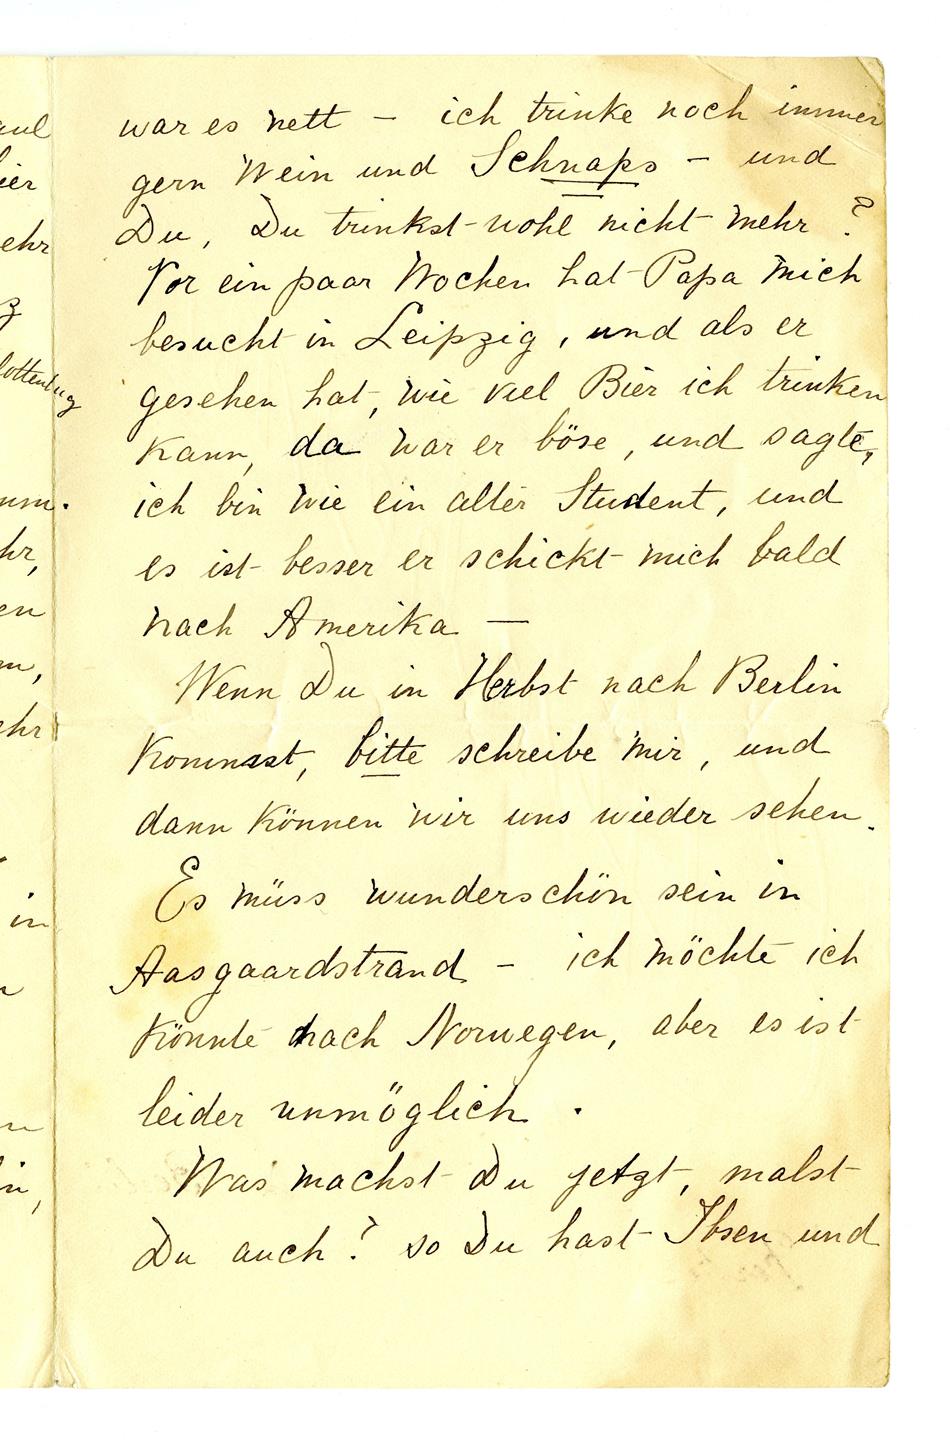 war es nett – ich trinke noch immer
gern Wein und Schnaps – und
Du, Du trinkst wohl nicht mehr?
Vor ein paar Wochen hat Papa mich
besucht in Leipzig, und als er
gesehen hat, wie viel Bier ich trinken
kann, da war er böse, und sagte,
ich bin wie ein alter Student, und
es ist besser er schickt mich bald
nach Amerika —
Wenn Du in Herbst nach Berlin
kommsst, bitte schreibe mir, und
dann können wir uns wieder sehen.
Es müss wunderschön sein in
Aasgaardstrand – ich möchte ich
könnte nach Norwegen, aber es ist
leider unmöglich.
Was machst Du jetzt, malst
Du auch? so Du hast Ibsen und